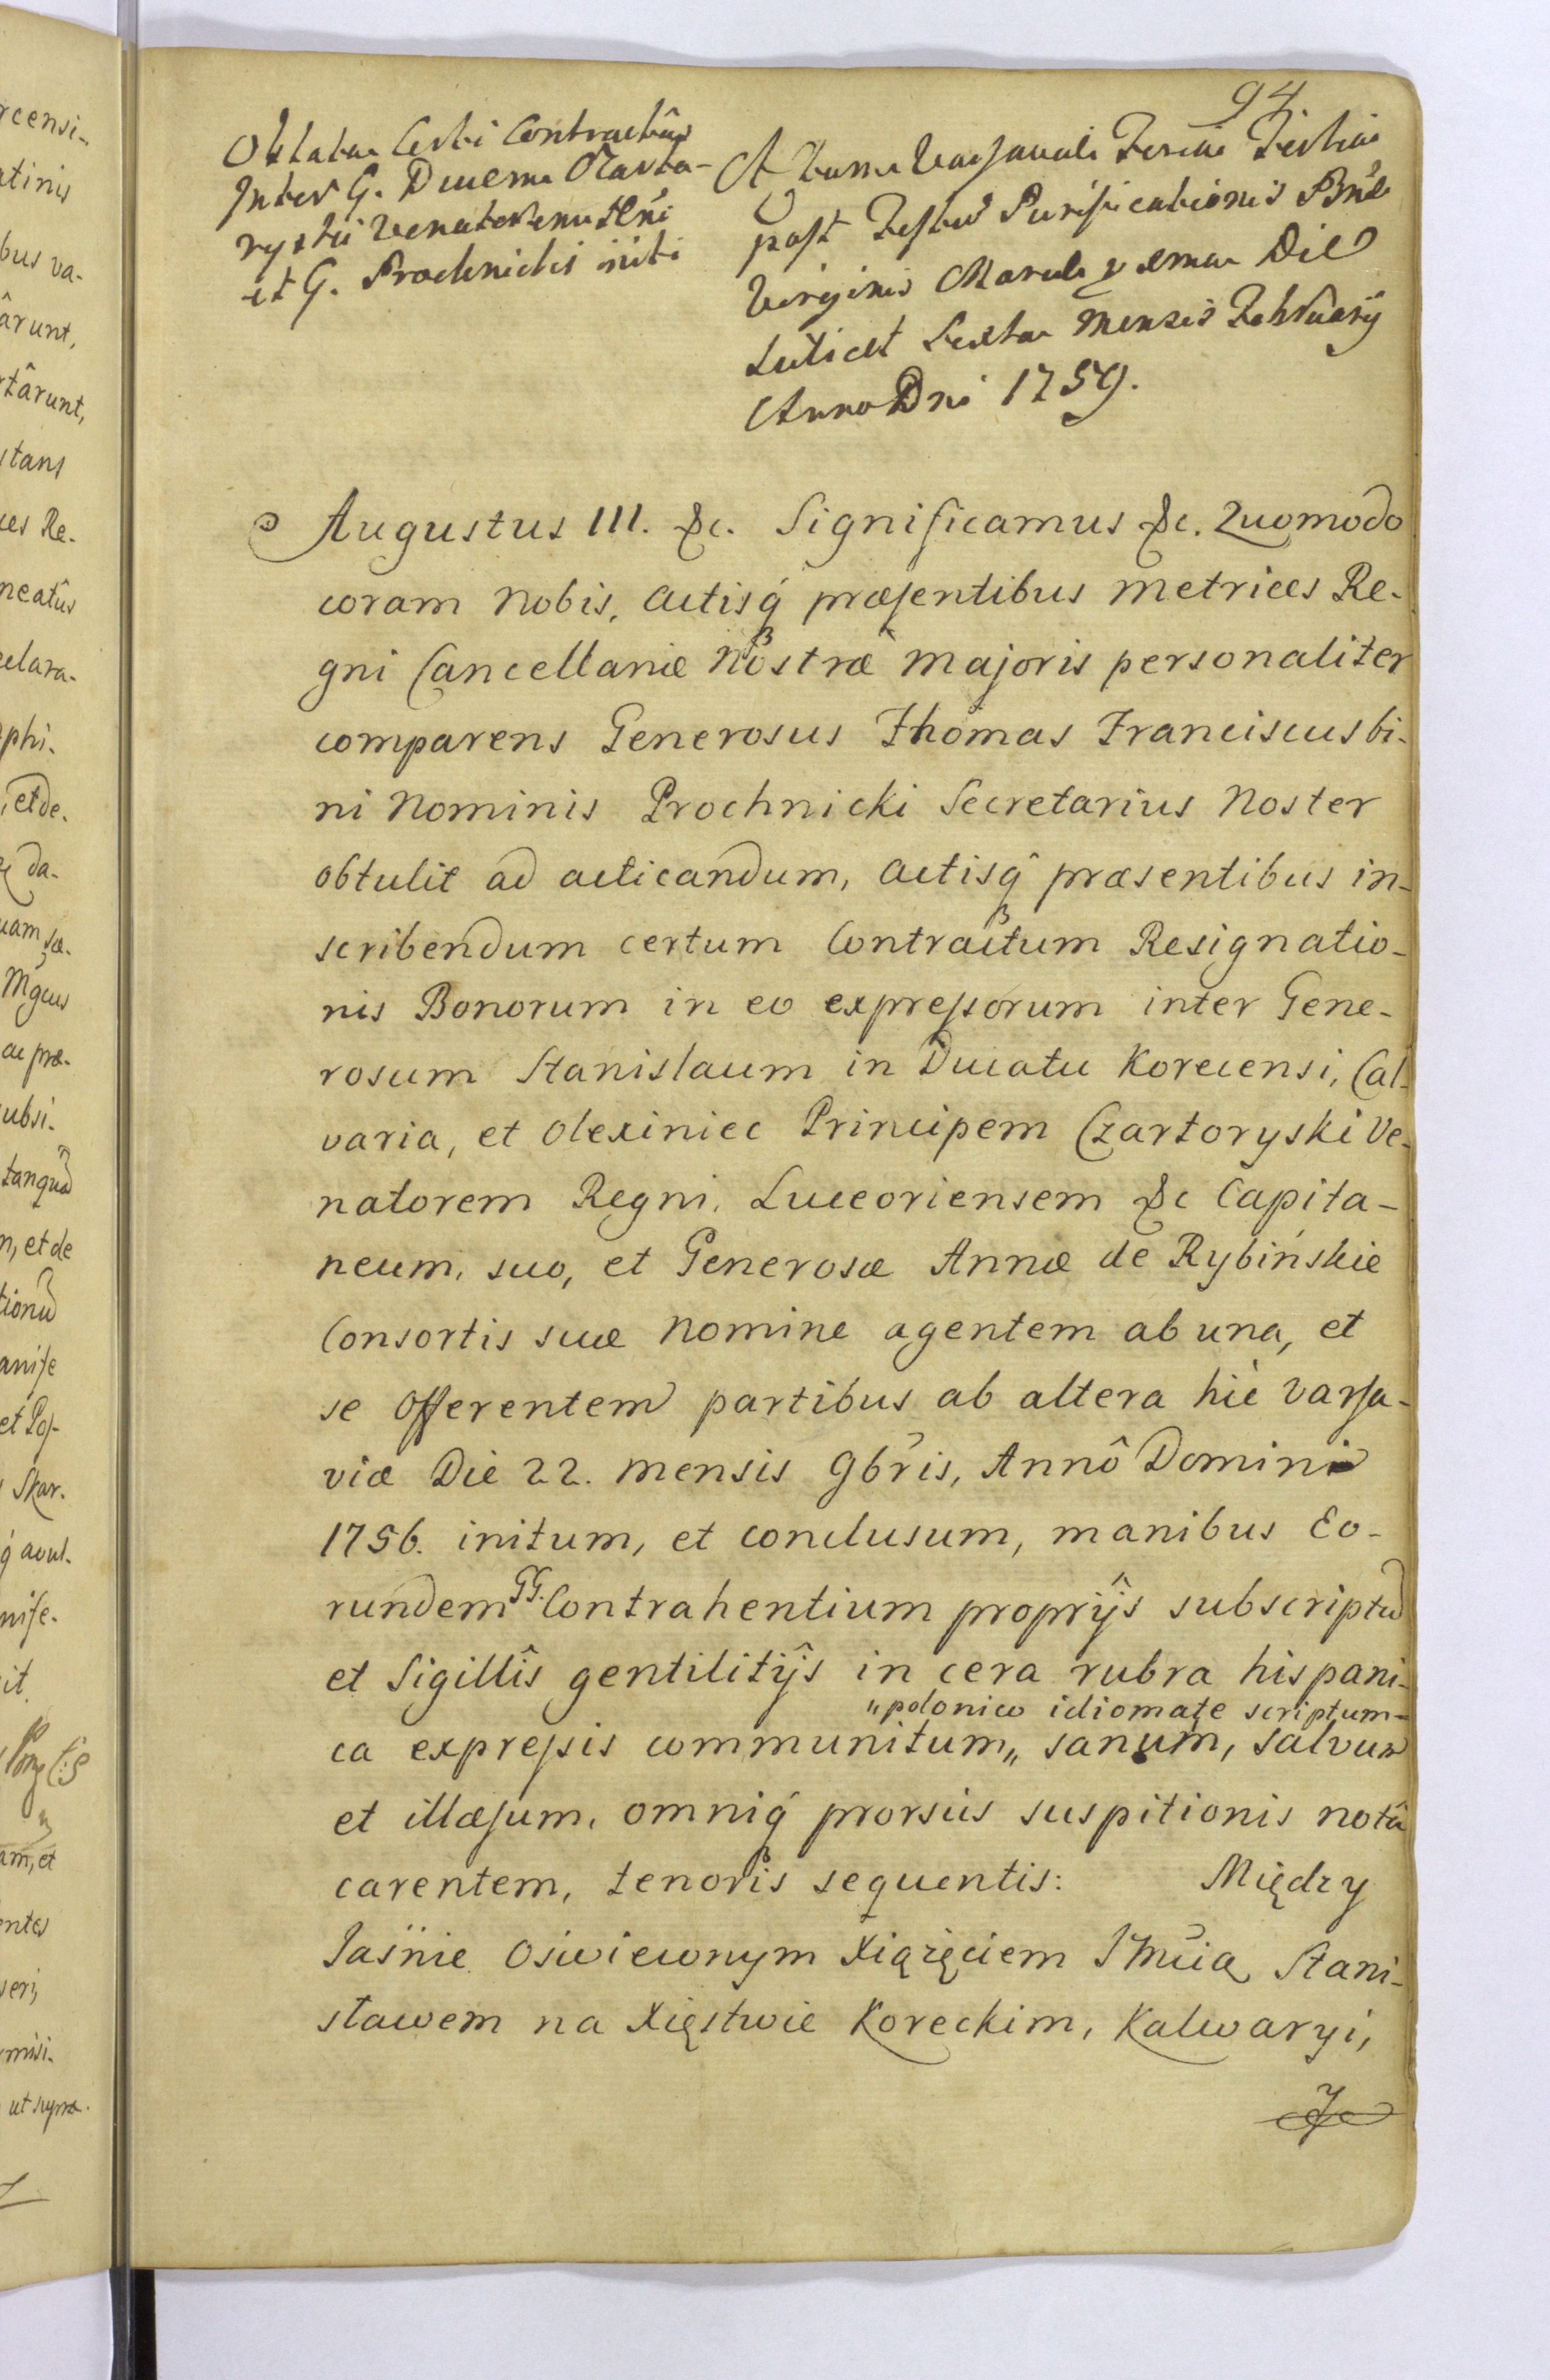 94
Oblata Certi Contractûs
Inter G. Ducem Czarto-
ryski Venatorem Rñi
et G. Prochnicki initi
Actum Varsaviæ Feria Tertia
post Festum Purificationis Bñæ
Virginis Mariæ Die
scilicet Sexta Mensis Februarÿ
Anno Dni 1759.
Augustus III. &c. Significamus &c. Quomodo
coram Nobis, Actisq́ præsentibus Metrices Re-
gni Cancellariæ Nostræ Majoris personaliter
comparens Generosus Thomas Franciscus bi-
ni Nominis Prochnicki Secretarius Noster
obtulit ad acticandum, Actisq̂ præsentibus in-
scribendum certum Contractum Resignatio-
nis Bonorum in eo expressorum inter Gene-
rosum Stanislaum in Ducatu Korecensi, Cal-
varia, et Olexiniec Principem Czartoryski Ve-
natorem Regni, Luceoriensem &c Capita-
neum, suo, et Generosæ Annæ de Rybińskie
Consortis suæ Nomine agentem ab una, et
se Offerentem partibus ab altera hic Varsa-
viæ Die 22. Mensis 9bris, Annô Domini
1756. initum, et conclusum, manibus Eo-
rundem GG. Contrahentium proprÿs subscriptum
et Sigillîs gentilitÿs in cera rubra hispani-
"polonico idiomate scriptum-
ca expressis communitum,, sanum, salvum
et illæsum, omniq́ prorsùs suspitionis notâ
carentem, tenoris sequentis: Między
Jaśnie Oświeconym Xiążęciem JMcią Stani-
sławem na Xięstwie Koreckim, Kalwaryi,